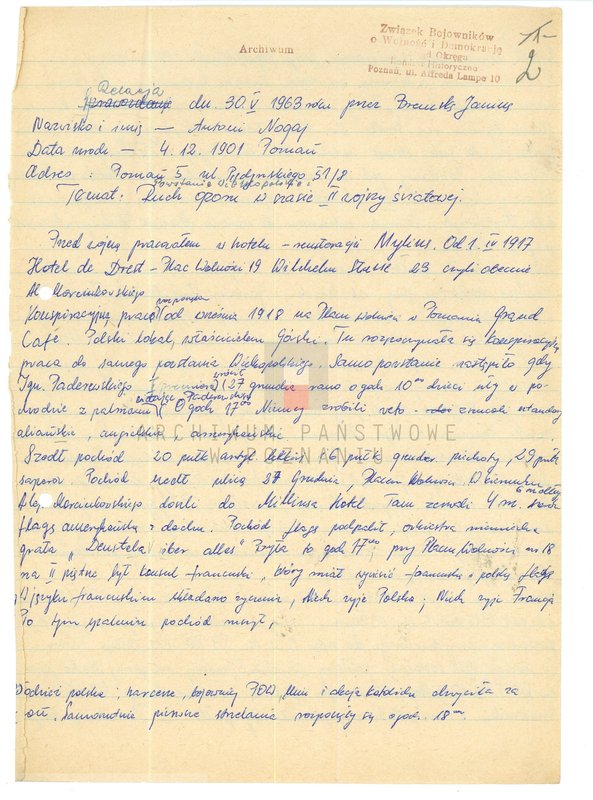 Archiwum
Związek Bojowników
o Wolność i Demokrację
Okręgu
Historyczna
Poznań, ul. Alfreda Lampe 10
1
2
Relacja
Sprawozdanie dn. 30.V 1963 roku przez
Nazwisko i imię — Antoni Nogaj
Data urodz — 4.12.1901 Poznań
Adres : Poznań 5, ul. 51/8
Powstanie Wielkopolskie i
Temat: Ruch oporu w czasie II wojny światowej.
Przed wojną pracowałem w hotelu – restauracji Mylius. Od 1.IV 1917
Hotel de Drest – Plac Wolności 19 Wilhelm 23 czyli obecnie
Al. Marcinkowskiego
rozpocząłem
Konspiracyjną pracę od września 1918 na Placu Wolności w Poznaniu Grand
Café. Polski lokal, właścicielem Górski. Tu rozpoczynała się konspiracyjna
praca do samego powstania Wielkopolskiego. Samo powstanie nastąpiło gdy
wrócił
Ign. Paderewski 27 grudnia rano o godz 10⁰⁰ dzieci szły w po-
witając Paderewskiego
chodzie z palmami O godz 17⁰⁰ Niemcy zrobili veto – zrywali sztandary
alianckie, angielskie,
Szedł pochód 20 pułk artyl. lekkiej 6 pułk grenad. piechoty, 29 pułk
saperów. Pochód szedł ulicą 27 Grudnia, Placem Wolności. W kierunku
Alej Marcinkowskiego doszli do Myliusa Hotel Tam zerwali 4 m.
6 m dług
flagę amerykańską z dachu. Pochód flagę podpalił, orkiestra niemiecka
grała "Deutschla über alles" Była to godz 17⁰⁰ przy Placu Wolności nr 18
na II piętrze był konsul francuski, który miał wywiesić francuską i polską flagę
W języku francuskim składano życzenia, Niech żyje Polska; Niech żyje Francja
Po tym spaleniu pochód ruszył,
Młodzież polska; harcerze, bojownicy POW, i chwyciła za
broń. Samorodnie pierwsze strzelania rozpoczęły się o godz. 18⁰⁰.
ARCHIWUM PAŃSTWOWE
W POZNANIU